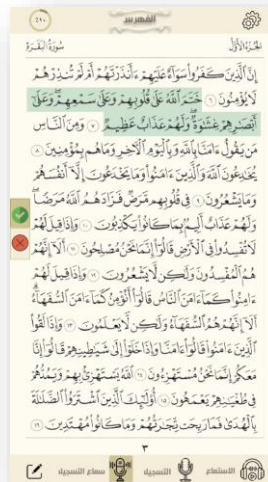 الفهرس
٤١٠
الجزء الأول
سورة البقرة
إِنَّ ٱلَّذِينَ كَفَرُوا۟ سَوَآءٌ عَلَيْهِمْ ءَأَنذَرْتَهُمْ أَمْ لَمْ تُنذِرْهُمْ
لَا يُؤْمِنُونَ ٦ خَتَمَ ٱللَّهُ عَلَىٰ قُلُوبِهِمْ وَعَلَىٰ سَمْعِهِمْ ۖ وَعَلَىٰٓ
أَبْصَـٰرِهِمْ غِشَـٰوَةٌ ۖ وَلَهُمْ عَذَابٌ عَظِيمٌ ٧ وَمِنَ ٱلنَّاسِ
مَن يَقُولُ ءَامَنَّا بِٱللَّهِ وَبِٱلْيَوْمِ ٱلْـَٔاخِرِ وَمَا هُم بِمُؤْمِنِينَ ٨
يُخَـٰدِعُونَ ٱللَّهَ وَٱلَّذِينَ ءَامَنُوا۟ وَمَا يَخْدَعُونَ إِلَّآ أَنفُسَهُمْ
وَمَا يَشْعُرُونَ ٩ فِى قُلُوبِهِم مَّرَضٌ فَزَادَهُمُ ٱللَّهُ مَرَضًا ۖ
وَلَهُمْ عَذَابٌ أَلِيمٌۢ بِمَا كَانُوا۟ يَكْذِبُونَ ١٠ وَإِذَا قِيلَ لَهُمْ
لَا تُفْسِدُوا۟ فِى ٱلْأَرْضِ قَالُوٓا۟ إِنَّمَا نَحْنُ مُصْلِحُونَ ١١ أَلَآ إِنَّهُمْ
هُمُ ٱلْمُفْسِدُونَ وَلَـٰكِن لَّا يَشْعُرُونَ ١٢ وَإِذَا قِيلَ لَهُمْ
ءَامِنُوا۟ كَمَآ ءَامَنَ ٱلنَّاسُ قَالُوٓا۟ أَنُؤْمِنُ كَمَآ ءَامَنَ ٱلسُّفَهَآءُ ۗ
أَلَآ إِنَّهُمْ هُمُ ٱلسُّفَهَآءُ وَلَـٰكِن لَّا يَعْلَمُونَ ١٣ وَإِذَا لَقُوا۟
ٱلَّذِينَ ءَامَنُوا۟ قَالُوٓا۟ ءَامَنَّا وَإِذَا خَلَوْا۟ إِلَىٰ شَيَـٰطِينِهِمْ قَالُوٓا۟ إِنَّا
مَعَكُمْ إِنَّمَا نَحْنُ مُسْتَهْزِءُونَ ١٤ ٱللَّهُ يَسْتَهْزِئُ بِهِمْ وَيَمُدُّهُمْ
فِى طُغْيَـٰنِهِمْ يَعْمَهُونَ ١٥ أُو۟لَـٰٓئِكَ ٱلَّذِينَ ٱشْتَرَوُا۟ ٱلضَّلَـٰلَةَ
بِٱلْهُدَىٰ فَمَا رَبِحَت تِّجَـٰرَتُهُمْ وَمَا كَانُوا۟ مُهْتَدِينَ ١٦
٣
الاستماع
التسجيل
سماع التسجيل